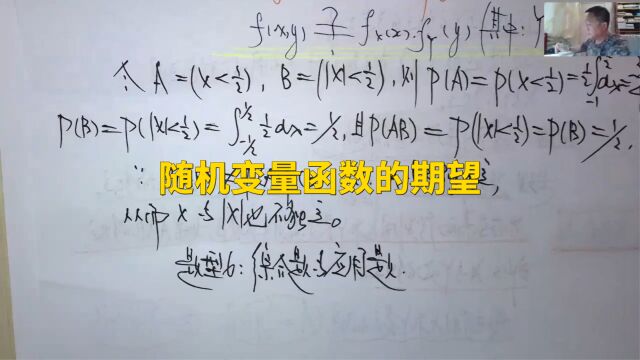 f(x,y) ? fₓ(x)·f_Y(y) (其中: Y
令 A=(X<1/2), B=(|X|<1/2), 则 P(A)=P(X<1/2)=1/2∫₋₁^(1/2)dx=
P(B)=P(|X|<1/2)=∫₋₁/₂^(1/2) 1/2 dx=1/2, 且P(AB)=P(|X|<1/2)=P(B)=1/2,
随机变量函数的期望
从而 X 与 |X| 也不独立。
题型6: 综合题与应用题.